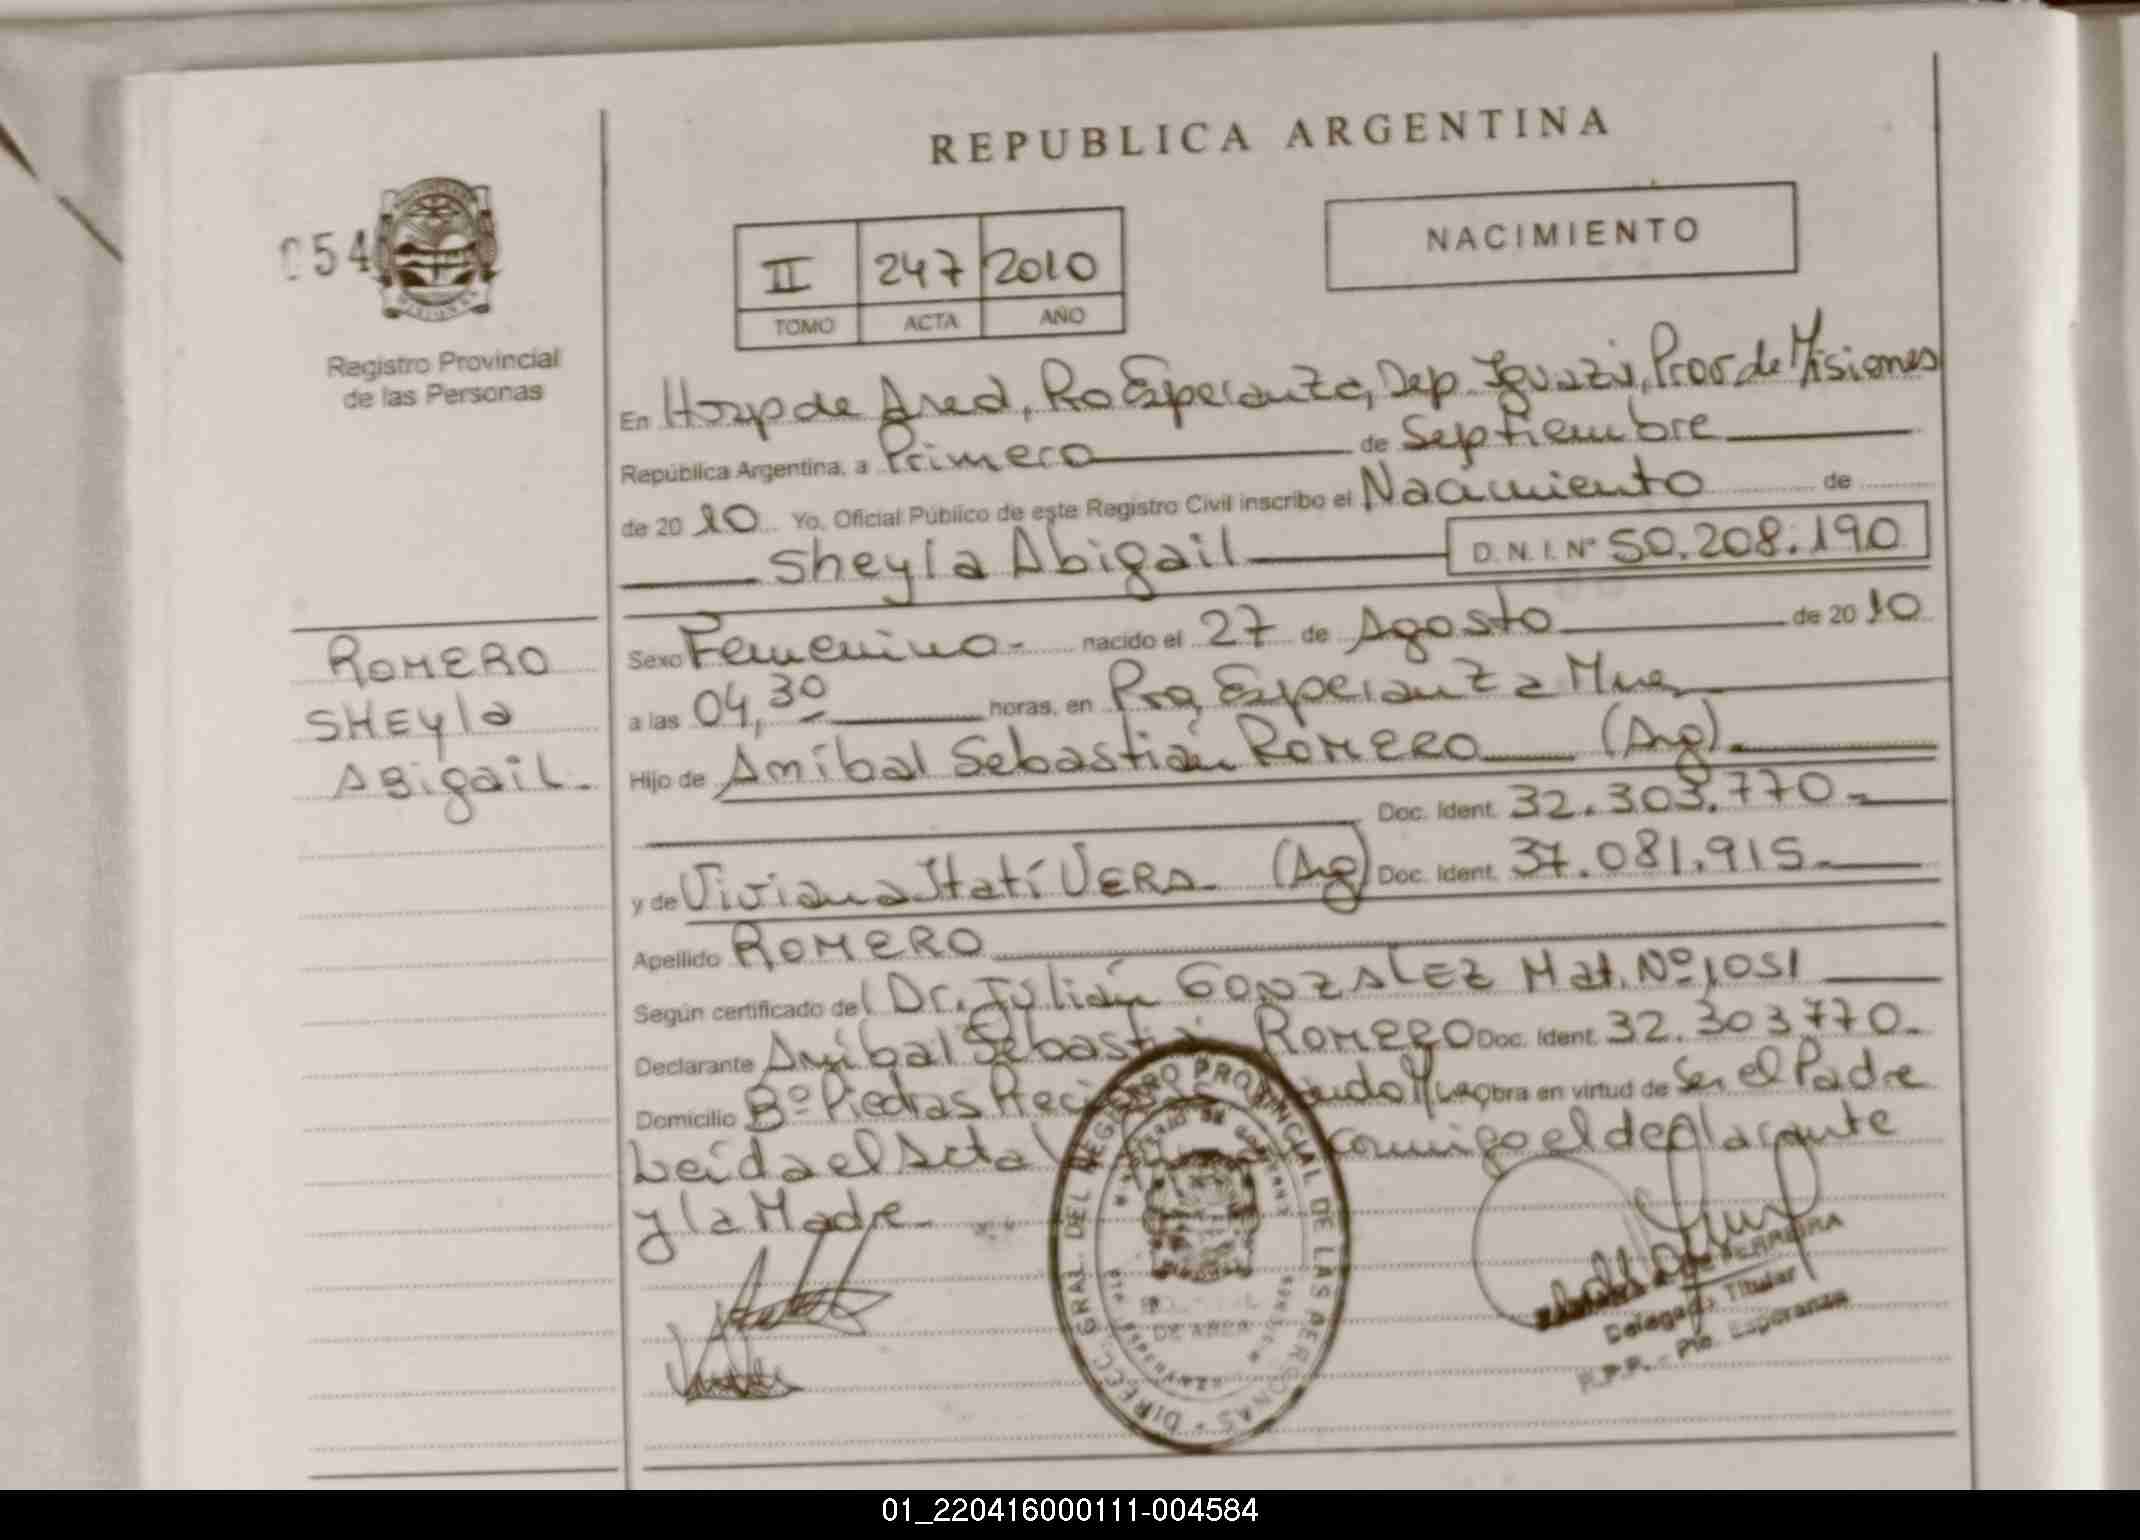 REPUBLICA ARGENTINA
054
II 247 2010
TOMO ACTA AÑO
NACIMIENTO
Registro Provincial
de las Personas
En Hosp de Area, Pto Esperanza, Dep. Iguazú, Prov de Misiones
República Argentina, a Primero de Septiembre
de 2010 Yo, Oficial Público de este Registro Civil inscribo el Nacimiento de
Sheyla Abigail D.N.I. Nº 50.208.190
ROMERO
SHEyla
ABigaiL.
Sexo Femenino- nacido el 27 de Agosto de 2010
a las 04,30 horas, en Pto Esperanza Mnes
Hijo de Anibal Sebastián ROMERO (Arg).
Doc. Ident. 32.303.770.-
y de Viviana Itatí VERA- (Arg) Doc. Ident. 37.081.915-
Apellido ROMERO
Según certificado del Dr. Julián GONZALEZ Mat. Nº 1051
Declarante Anibal Sebastián ROMERO Doc. Ident. 32.303770-
Domicilio Bº Piedras Obra en virtud de Ser el Padre
Leída el Acta conmigo el declarante
y la Madre-
DIRECC. GRAL. DEL REGISTRO PROVINCIAL DE LAS PERSONAS
DE AREA
FERREIRA
Delegado Titular
R.P.P. - Pto. Esperanza
01_220416000111-004584